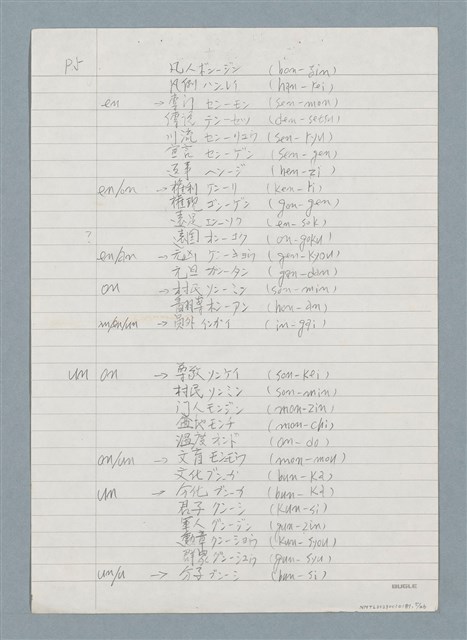 P5 凡人ボン-ジン (bon-zin)
凡例 ハンレイ (han-rei)
en → 専门 セン-モン (sen-mon)
伝説 デン-セツ (den-setsu)
川流 セン-リュウ (sen-ryu)
宣言 セン-ゲン (sen-gen)
返事 ヘン-ジ (hen-zi)
en/on → 権利 ケン-リ (ken-ri)
権現 ゴン-ゲン (gon-gen)
遠足 エン-ソク (en-sok)
? 遠国 オン-ゴク (on-goku)
en/an → (gen-kyou)
元旦 ガン-タン (gan-dan)
on → 村民 ソン-ミン (son-min)
ホン-アン (hon-an)
→ 員外 インガイ (in-gai)
un on → 尊敬 ソンケイ (son-kei)
村民 ソンミン (son-min)
门人 モンジン (mon-zin)
モンチ (mon-chi)
温度 オンド (on-do)
on/un → 文盲 モンモウ (mon-mou)
文化 ブンカ (bun-ka)
un → 分化 ブン-カ (bun-ka)
君子 クン-シ (kun-si)
軍人 グン-ジン (gun-zin)
勲章 クン-ショウ (kun-syou)
群衆 グン-シュウ (gun-syu)
un/u → 分子 ブン-シ (bun-si)
BUGLE